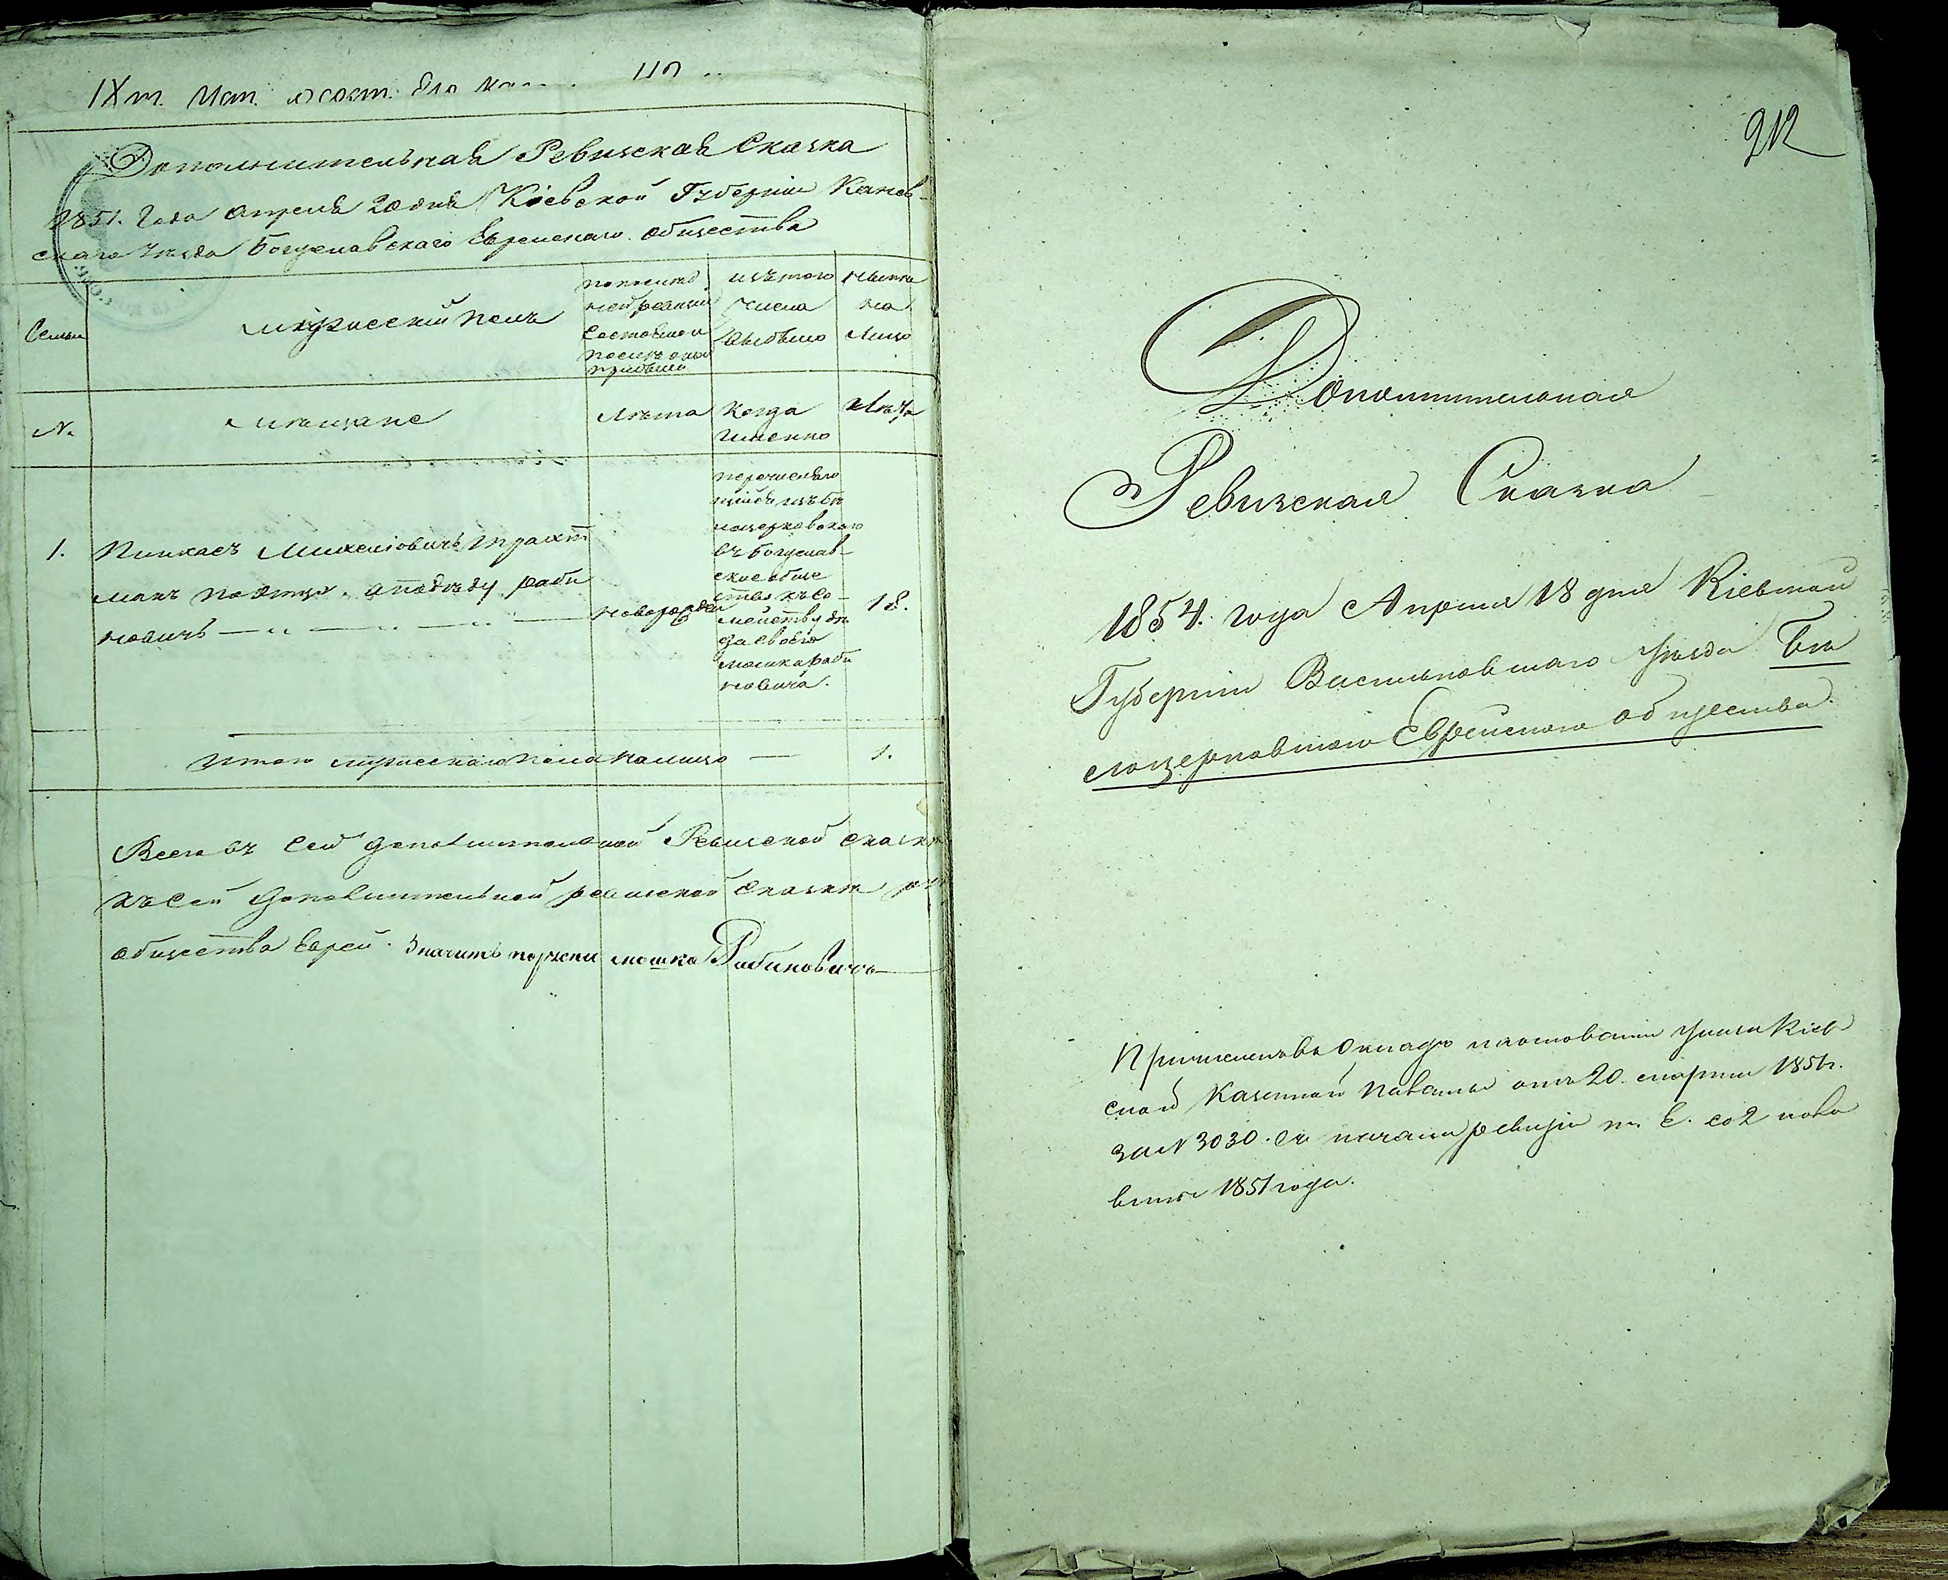 IXт.
Дополнительная Ревизская Сказка
1851. Года Апреля 20 дня Кіевской Губерніи Канев-
скаго уезда Богуславскаго Еврейскаго общества
Семьи
мужескій полъ
по послед
ней ревизіи
состояло и
после оной
прибыло
изъ того
числа
выбыло
ныне
на
лицо
№.
мещане
Лета
когда
именно
Лета
1.
Пинкасъ Михелiовичъ Трахт
манъ по отцу. а по деду раби
новичъ
новорожден
перечисляю
щійся изъ Бе
лоцерковскаго
въ Богуслав-
ское обще
ство къ се-
мейству де
да своего
Мошка Раби
новича.
18.
Итого мужескаго пола налицо — 1.
Всего въ сей дополнительной Ревизской сказке
Къ сей дополнительной ревизской сказке
общества Еврей. Значитъ
Мошко Рабиновичъ
212
Дополнительная
Ревизская Сказка
1854. года Апреля 18 дня Кіевской
Губерніи Васильковскаго Уезда Бе
лоцерковскаго Еврейскаго общества.
Причисленъ въ окладъ на основаніи Указа Кіев
ской Казенной Палаты отъ 20. марта 1851г.
за № 3030. съ начала ревизіи т. е. со 2 поло
вины 1851 года.